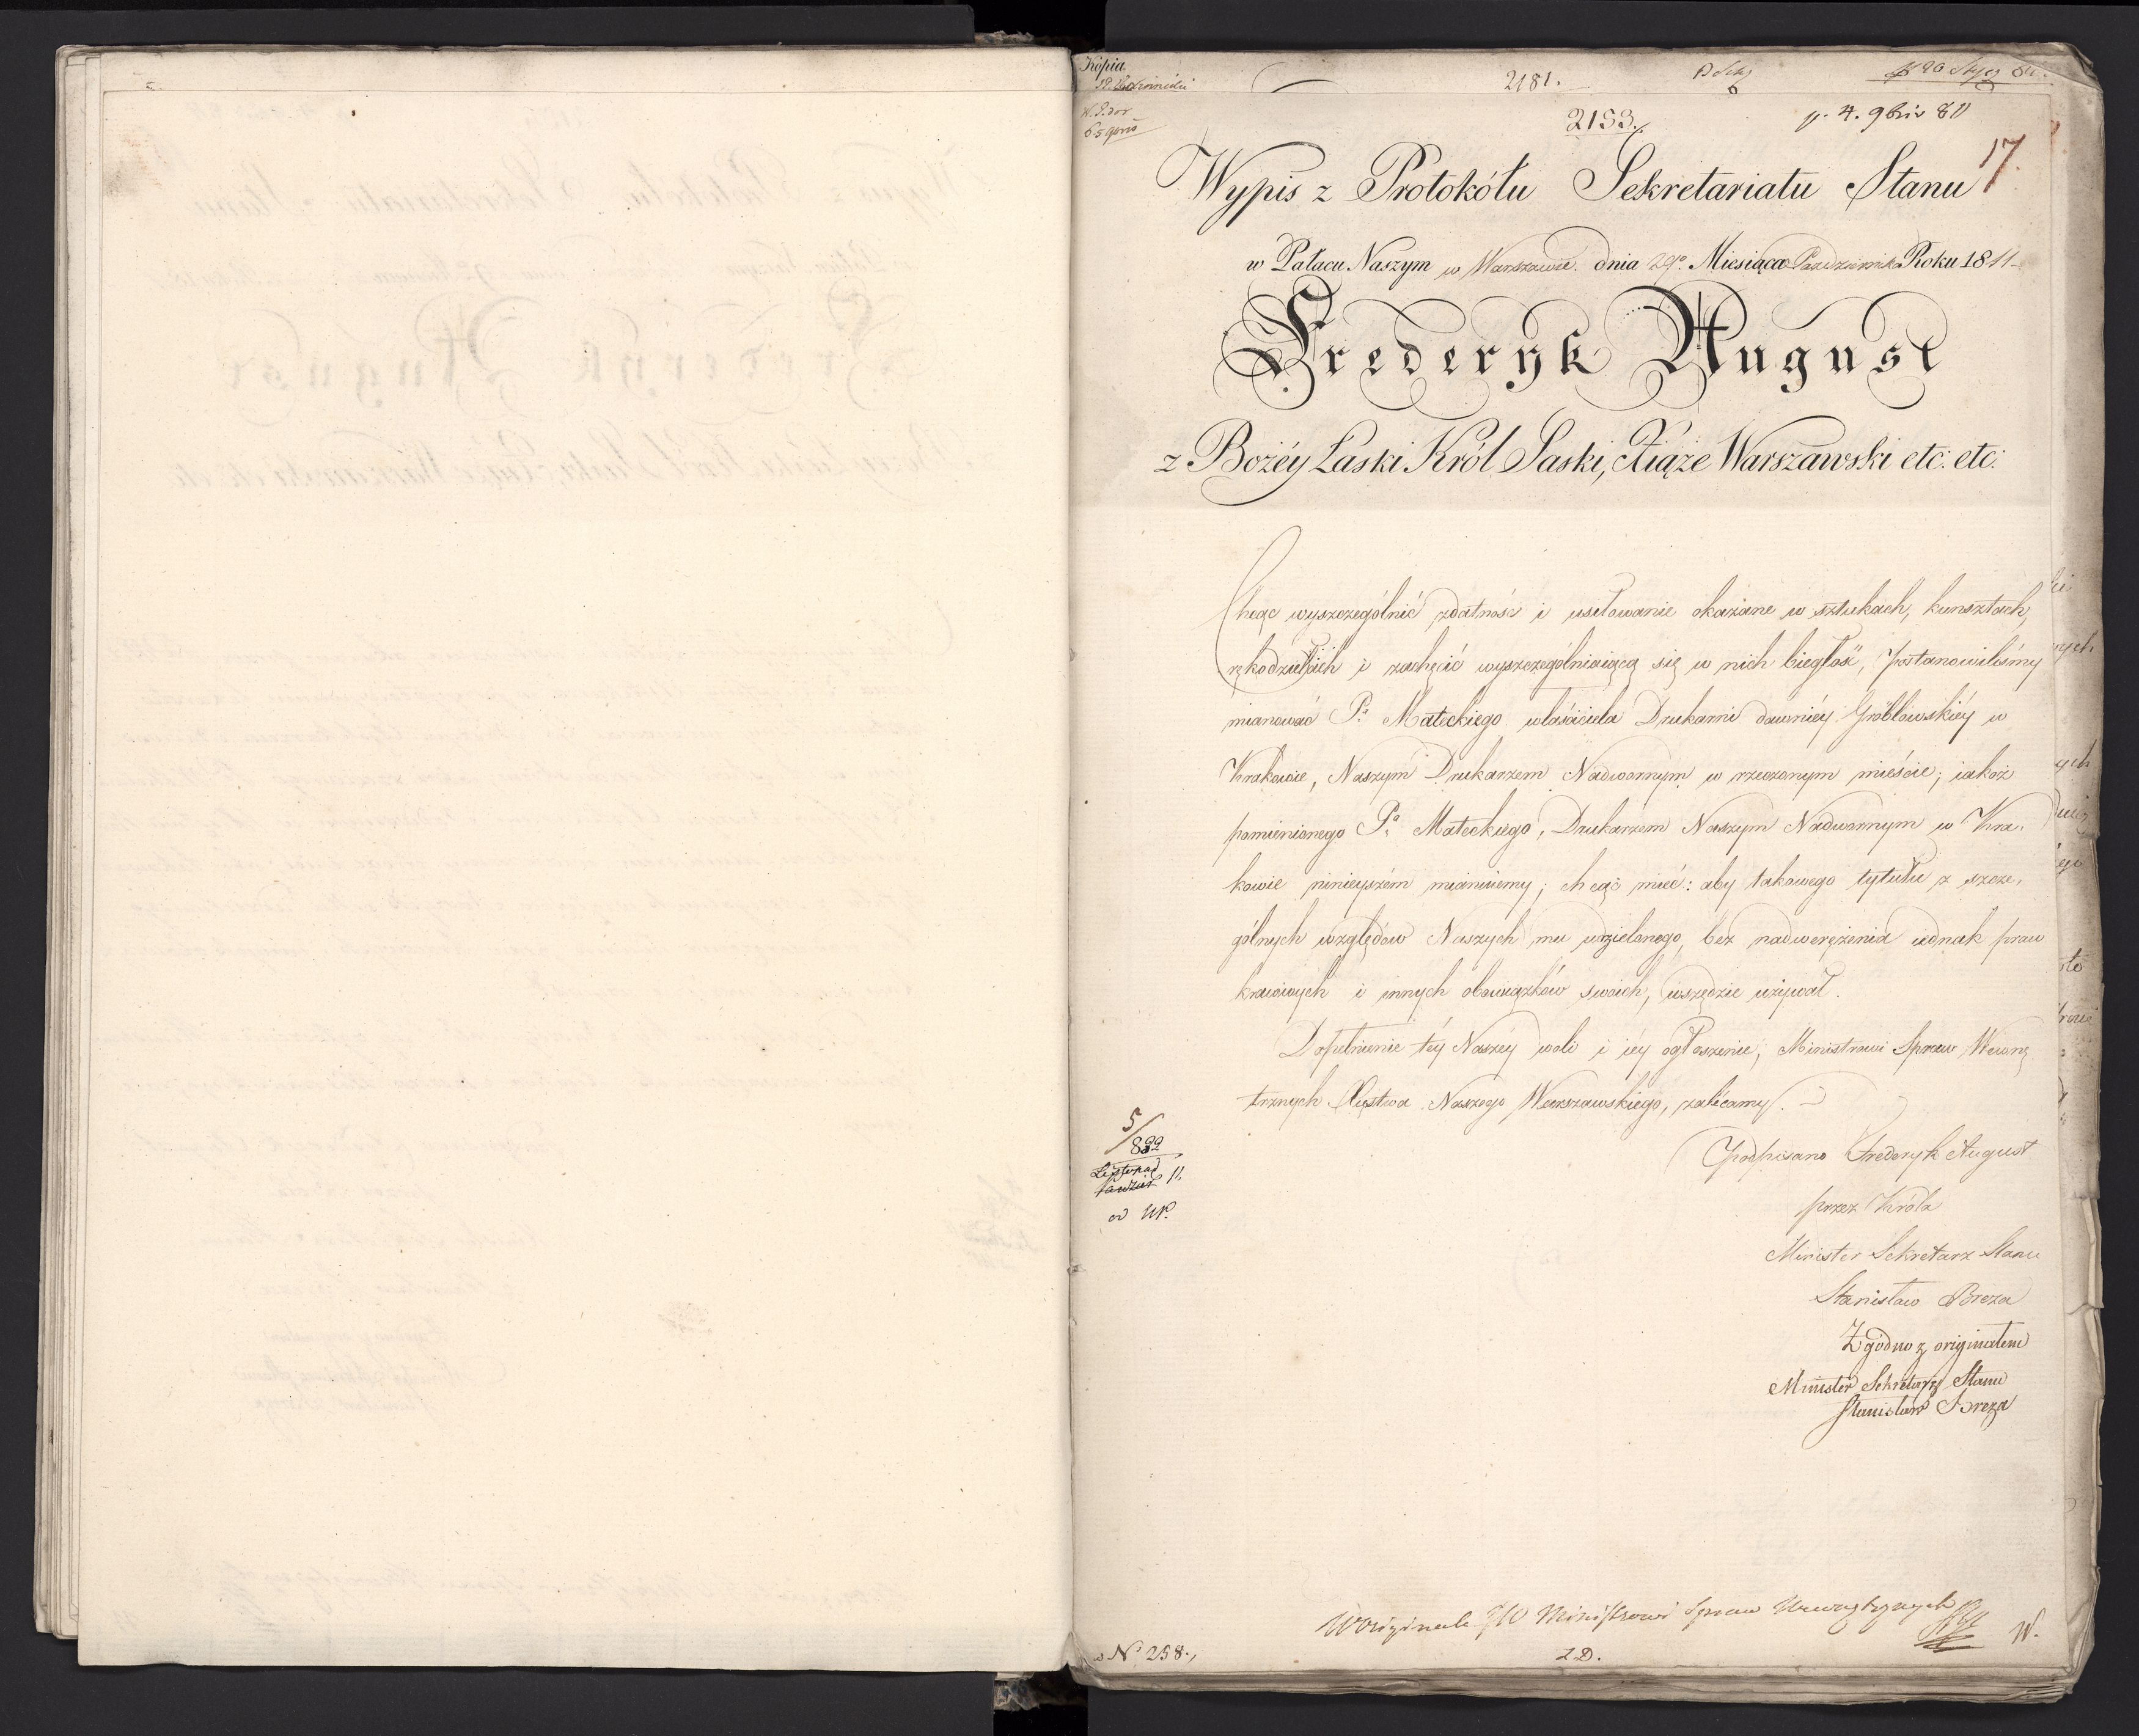 Kopia
2181.
2183.
p. 4. 9bris 811
17.
Wypis z Protokółu Sekretariatu Stanu
w Pałacu Naszym w Warszawie. dnia 29o. Miesiąca Pazdziernika Roku 1811
Frederyk August
z Bożéy Łaski Król Saski, Xiąże Warszawski etc: etc:
Chcąc wyszczególnić zdatność i usiłowanie okazane w sztukach, kunsztach,
rękodziełach i zachęcić wyszczególniaiącą się w nich biegłość, postanowiliśmy
mianować Po. Mateckiego właściciela Drukarni dawniéy Gröblowskiéy w
Krakowie, Naszym Drukarzem Nadwornym w rzeczonym mieście; iakoż
pomienionego Po. Mateckiego, Drukarzem Naszym Nadwornym w Kra-
kowie ninieyszém mianuiemy; chcąc mieć: aby takowego tytułu z szcze-
gólnych względów Naszych mu udzielonego, bez nadwerężenia iednak praw
kraiowych i innych obowiązków swoich, wszędzie używał.
Dopełnienie téy Naszéy woli i iéy ogłoszenie, Ministrowi Spraw Wewnę
trznych Xięstwa Naszego Warszawskiego, zalécamy.
5/822
Listopad 11.
(podpisano Frederyk August
przez Króla
Minister Sekretarz Stanu
Stanisław Breza
Zgodno z originałem
Minister Sekretarz Stanu
Stanisław Breza
W originale JW Ministrowi Spraw Wewnętrznych
W.
No 258.
L.D.